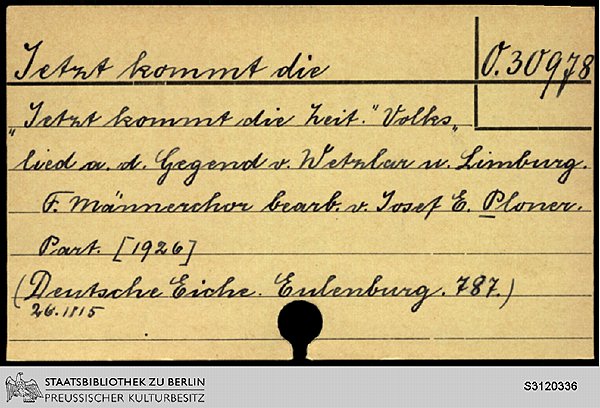 Jetzt kommt die
O. 30978
„Jetzt kommt die Zeit." Volks„
lied a. d. Gegend v. Wetzlar u. Limburg.
F. Männerchor bearb. v. Josef E. Ploner.
Part. [1926]
(Deutsche Eiche. Eulenburg. 787.)
26.1115
STAATSBIBLIOTHEK ZU BERLIN
PREUSSISCHER KULTURBESITZ
S3120336